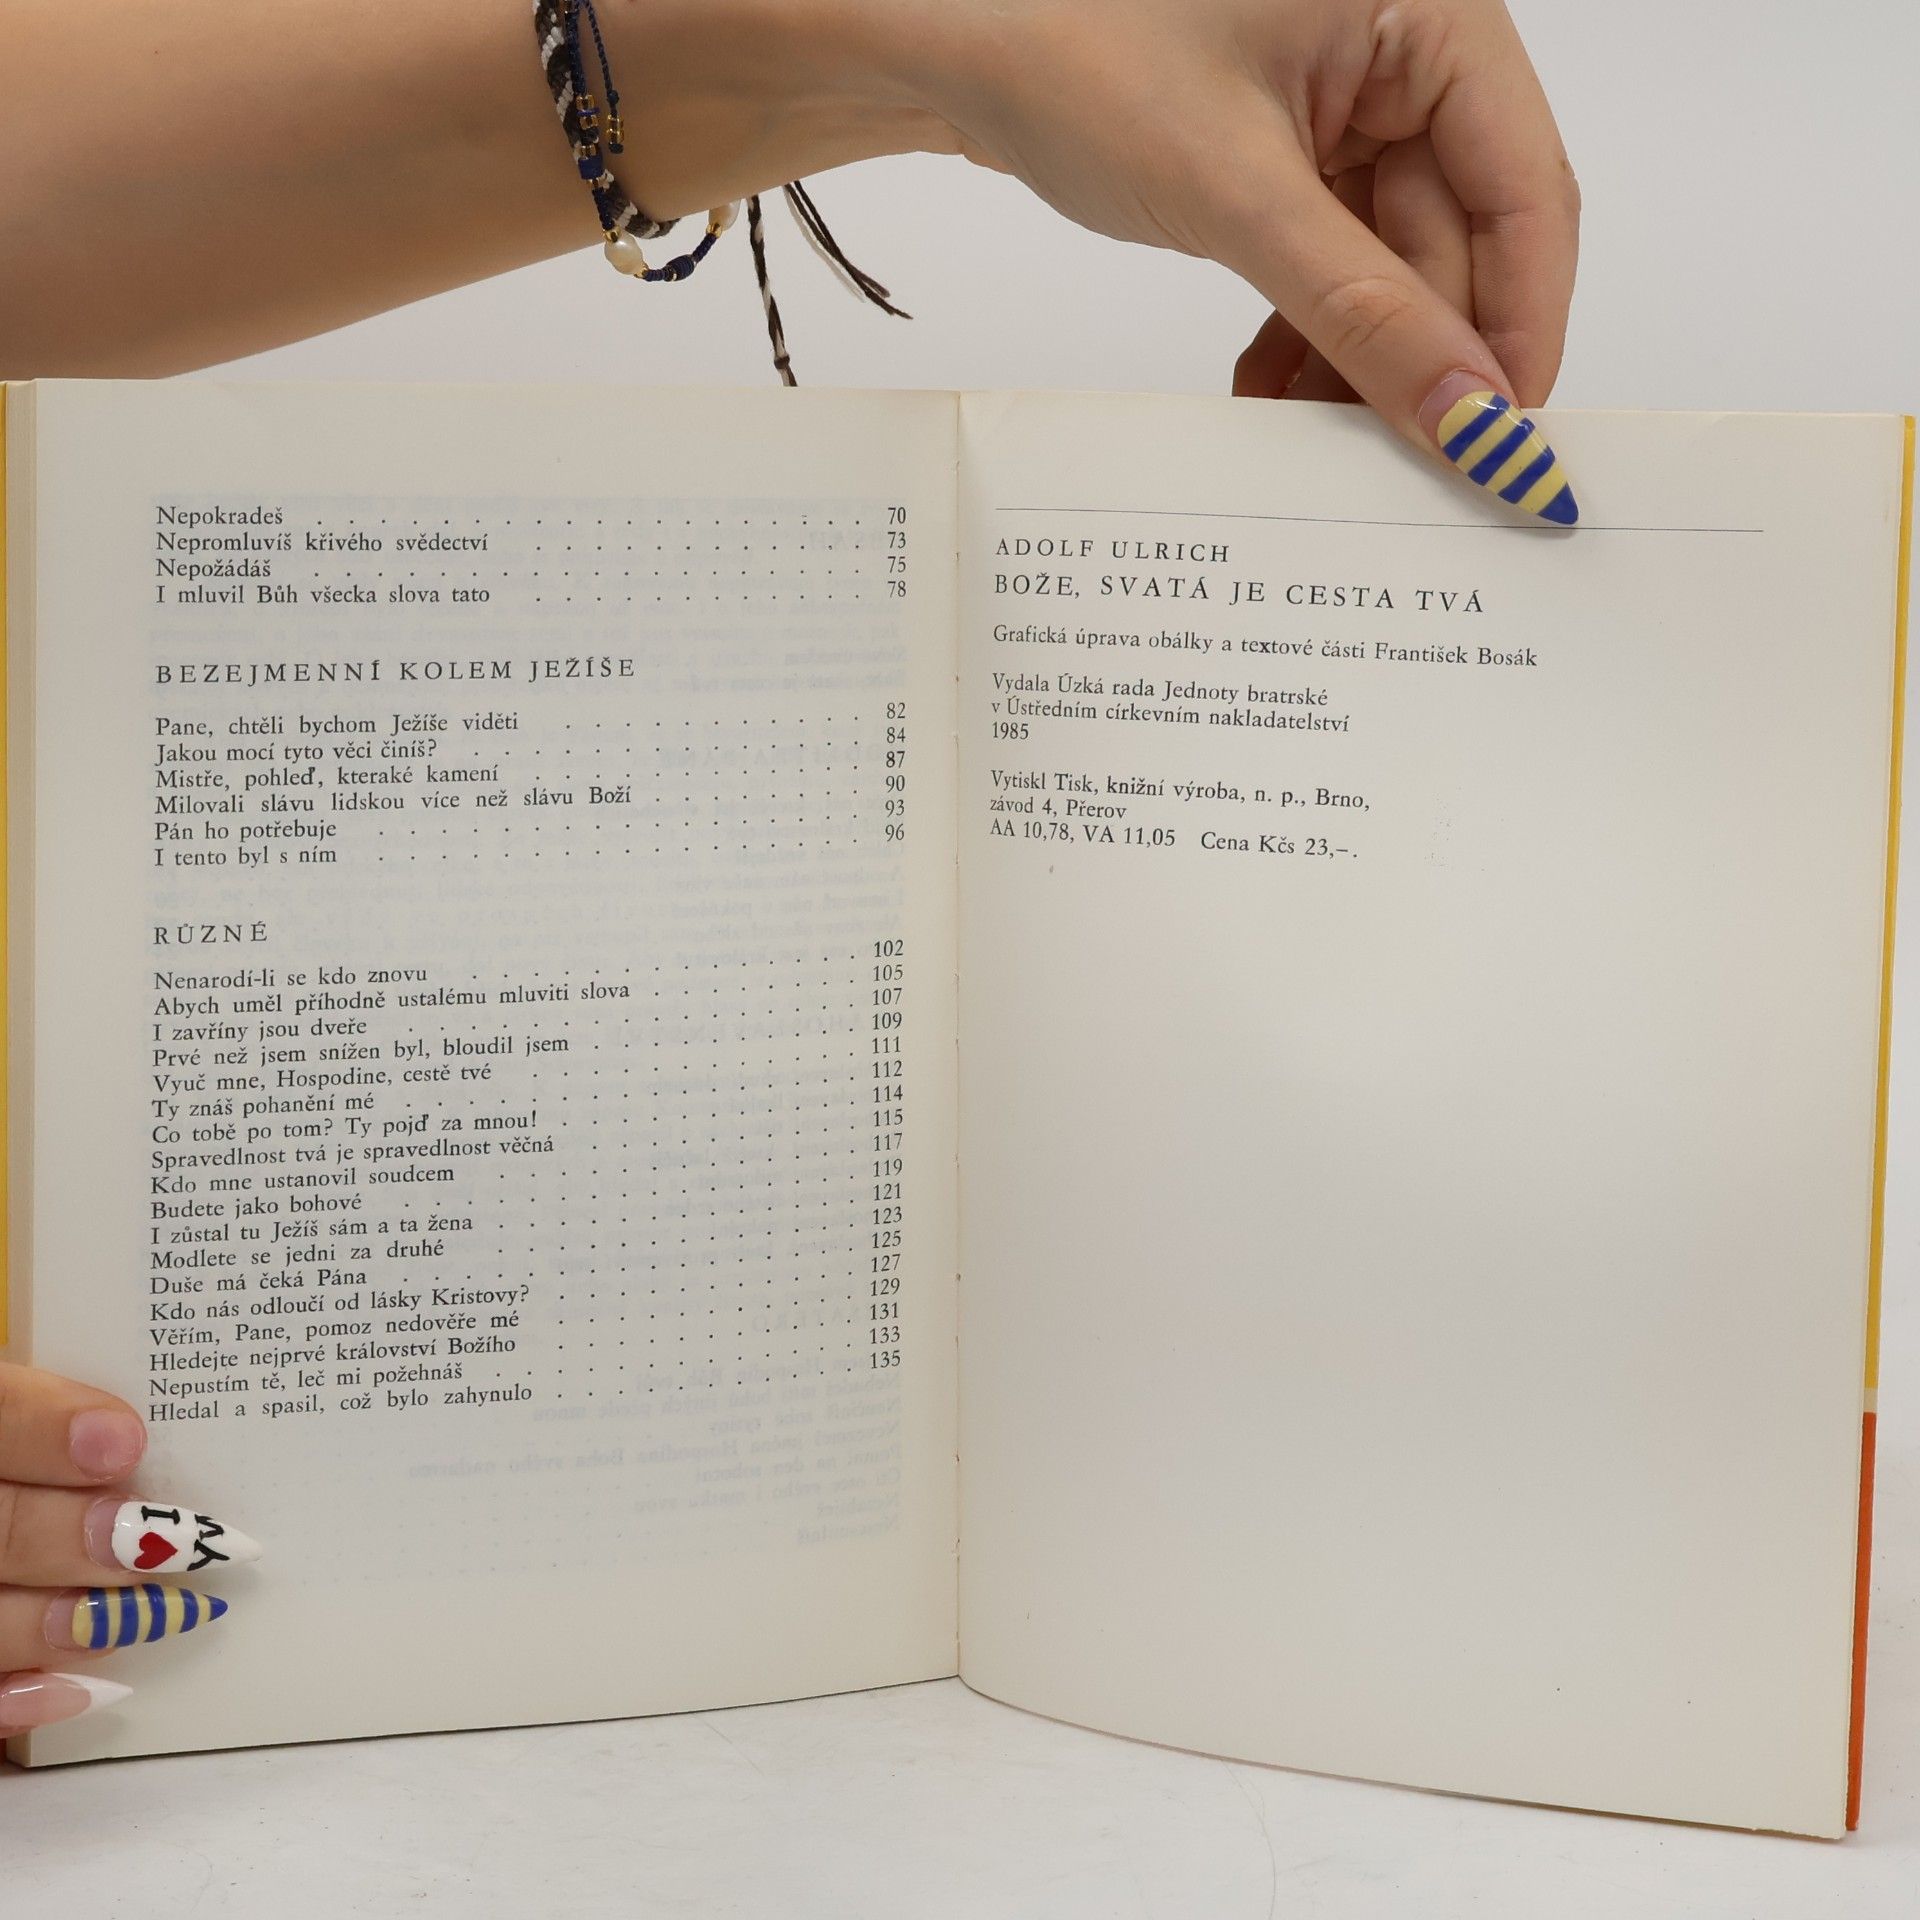 Nepokradeš . . . . . . . . . . . . . . . . . . 70
Nepromluvíš křivého svědectví . . . . . . . . . . . . 73
Nepožádáš . . . . . . . . . . . . . . . . . . 75
I mluvil Bůh všecka slova tato . . . . . . . . . . . . 78
BEZEJMENNÍ KOLEM JEŽÍŠE
Pane, chtěli bychom Ježíše viděti . . . . . . . . . . . 82
Jakou mocí tyto věci činíš? . . . . . . . . . . . . . . 84
Mistře, pohleď, kteraké kamení . . . . . . . . . . . . 87
Milovali slávu lidskou více než slávu Boží . . . . . . . . 90
Pán ho potřebuje . . . . . . . . . . . . . . . . 93
I tento byl s ním . . . . . . . . . . . . . . . . 96
RŮZNÉ
Nenarodí-li se kdo znovu . . . . . . . . . . . . . . 102
Abych uměl příhodně ustalému mluviti slova . . . . . . . . 105
I zavříny jsou dveře . . . . . . . . . . . . . . . . 107
Prvé než jsem snížen byl, bloudil jsem . . . . . . . . . . 109
Vyuč mne, Hospodine, cestě tvé . . . . . . . . . . . . 111
Ty znáš pohanění mé . . . . . . . . . . . . . . . . 112
Co tobě po tom? Ty pojď za mnou! . . . . . . . . . . . 114
Spravedlnost tvá je spravedlnost věčná . . . . . . . . . . 115
Kdo mne ustanovil soudcem . . . . . . . . . . . . . 117
Budete jako bohové . . . . . . . . . . . . . . . . 119
I zůstal tu Ježíš sám a ta žena . . . . . . . . . . . . . 121
Modlete se jedni za druhé . . . . . . . . . . . . . 123
Duše má čeká Pána . . . . . . . . . . . . . . . . 125
Kdo nás odloučí od lásky Kristovy? . . . . . . . . . . . 127
Věřím, Pane, pomoz nedověře mé . . . . . . . . . . . 129
Hledejte nejprvé království Božího . . . . . . . . . . . 131
Nepustím tě, leč mi požehnáš . . . . . . . . . . . . . 133
Hledal a spasil, což bylo zahynulo . . . . . . . . . . . 135
ADOLF ULRICH
BOŽE, SVATÁ JE CESTA TVÁ
Grafická úprava obálky a textové části František Bosák
Vydala Úzká rada Jednoty bratrské
v Ústředním církevním nakladatelství
1985
Vytiskl Tisk, knižní výroba, n. p., Brno,
závod 4, Přerov
AA 10,78, VA 11,05 Cena Kčs 23,–.
I ♥
NY